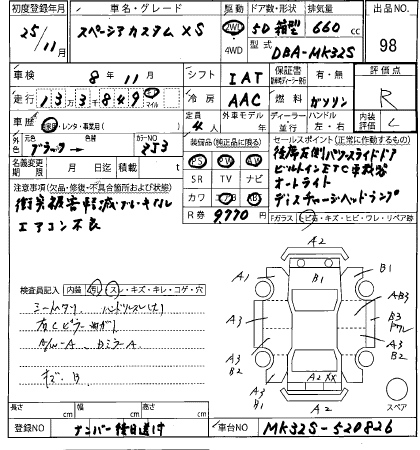 初度登録年月 車名・グレード 駆動 ドア数・形状 排気量 出品NO.
25/11月 スペーシアカスタム XS 2WD 4WD 5D 箱型 660 cc 98
型式 DBA-MK32S
車検 8年 11月 シフト IAT 保証書 有・無 評価点
走行 133849 マイル 冷房 AAC 燃料 ガソリン R
車歴 自家・レンタ・事業用 定員 4人 外車モデル 年 ディーラー 並行 ハンドル 左・右 内装評価 C
外色 元色 ブラック カラーNO Z53 装備品(純正品に限る) セールスポイント(正常に作動するもの)
名義変更期限 月 日迄 積載 t PS AW
後席左側パワースライドドア
SR TV ナビ
ビルトインETC車載器
注意事項(欠品・修復・不具合箇所および状態) オートライト
衝突被害軽減ブレーキ カワ ディスチャージヘッドランプ
エアコン不良 R券 9,770 Fガラス ヒビ・キズ・ヒビ・ワレ・リペア跡
A2
A1 B1 B1
検査員記入 内装 ・スレ・キズ・キレ・コゲ・穴
A3 AB3
シートスレ ハンドルスレ B3
A3 A3
A3 B2 A3 B2
キズ・B
A2 XX
A3 B1 A2 スペア
長さ cm 幅 cm 高さ cm
登録NO ナンバー後日送付 車台NO MK32S-520826